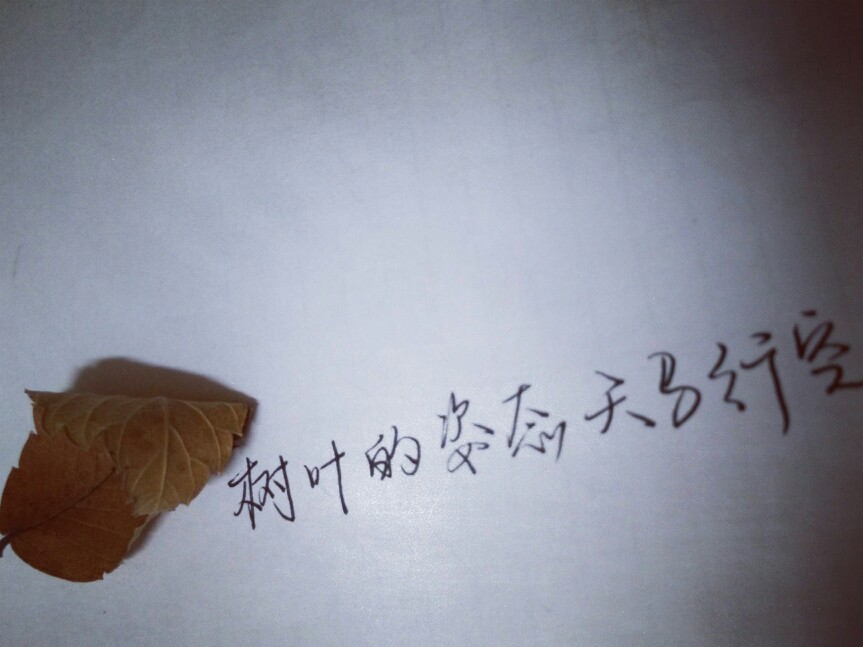 树叶的姿态天马行空